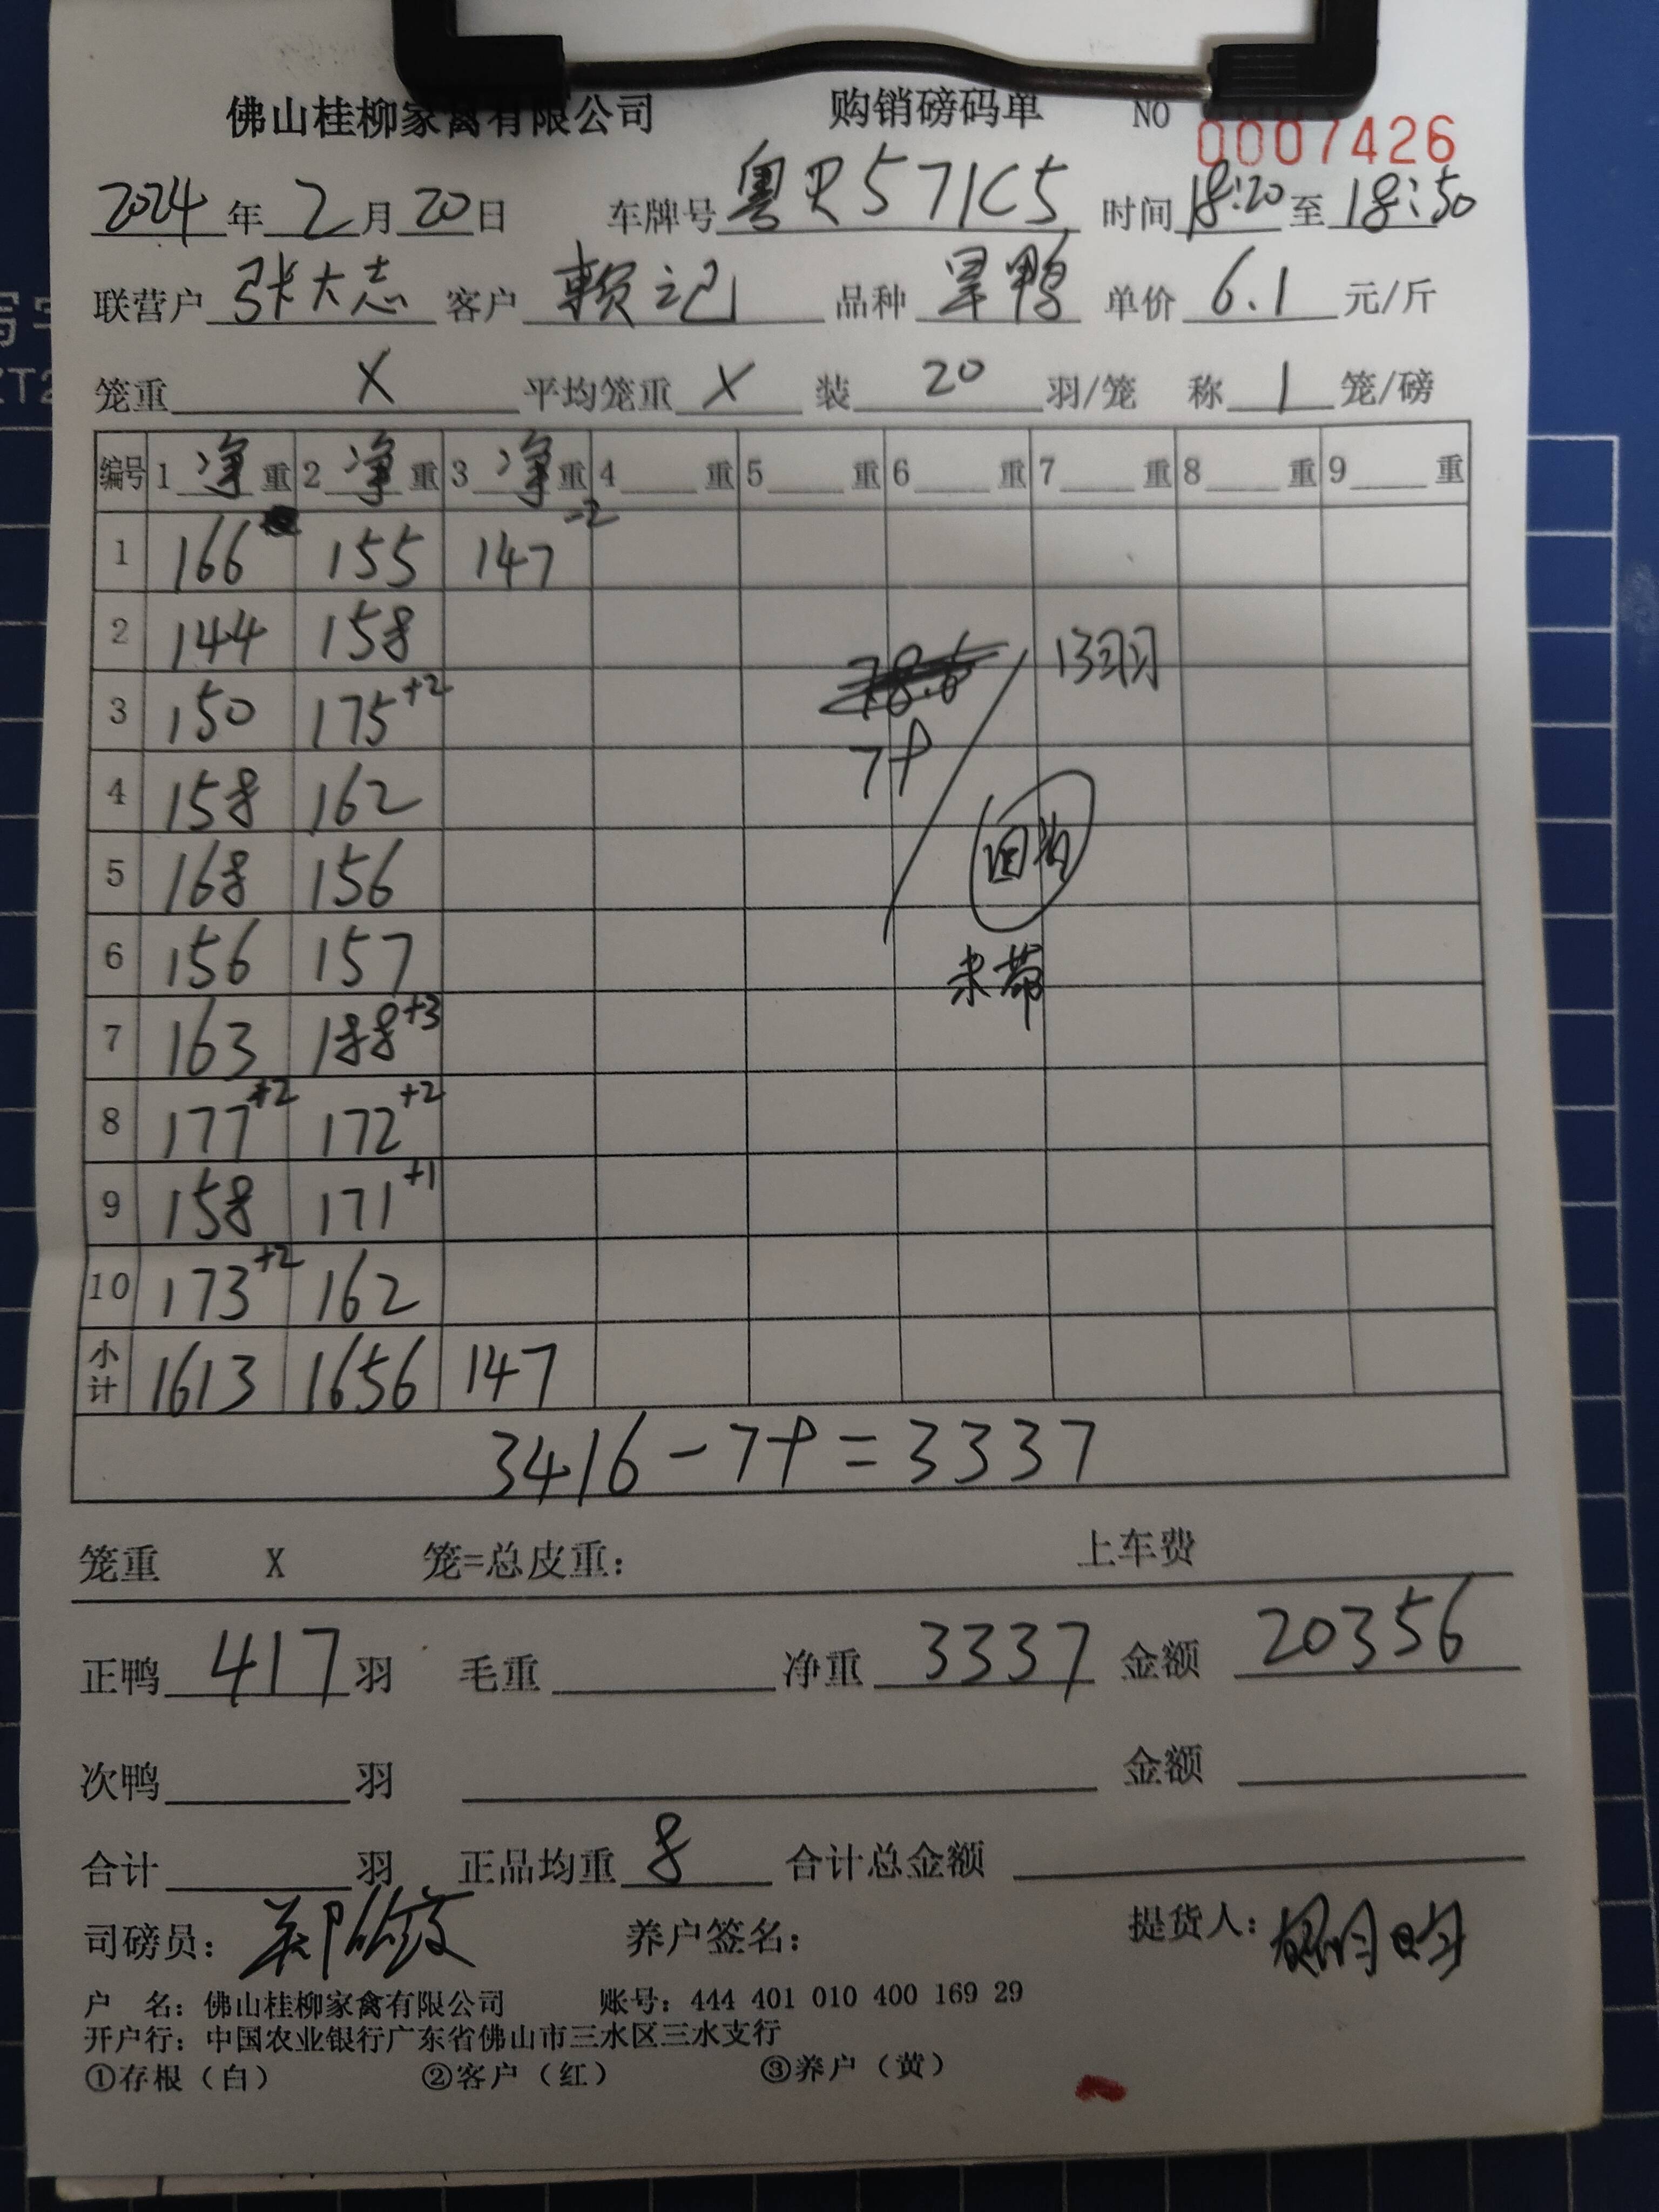 佛山桂柳家禽有限公司 购销磅码单 NO 0007426
2024年2月20日 车牌号粤R571C5 时间18:20至18:50
联营户张大志 客户赖记 品种旱鸭 单价6.1元/斤
笼重X 平均笼重X 装20羽/笼 称1笼/磅
编号 1净重 2净重 3净重 4 重 5 重 6 重 7 重 8 重 9 重
1 166 155 147-2
2 144 158
3 150 175+2
4 158 162
5 168 156
6 156 157
7 163 188+3
8 177+2 172+2
9 158 171+1
10 173+2 162
79/13羽
未带
小计 1613 1656 147
3416-79=3337
笼重 X 笼=总皮重: 上车费
正鸭417羽 毛重 净重3337 金额20356
次鸭 羽 金额
合计 羽 正品均重8 合计总金额
司磅员: 养户签名: 提货人:
户 名: 佛山桂柳家禽有限公司 账号: 444 401 010 400 169 29
开户行: 中国农业银行广东省佛山市三水区三水支行
①存根（白） ②客户（红） ③养户（黄）